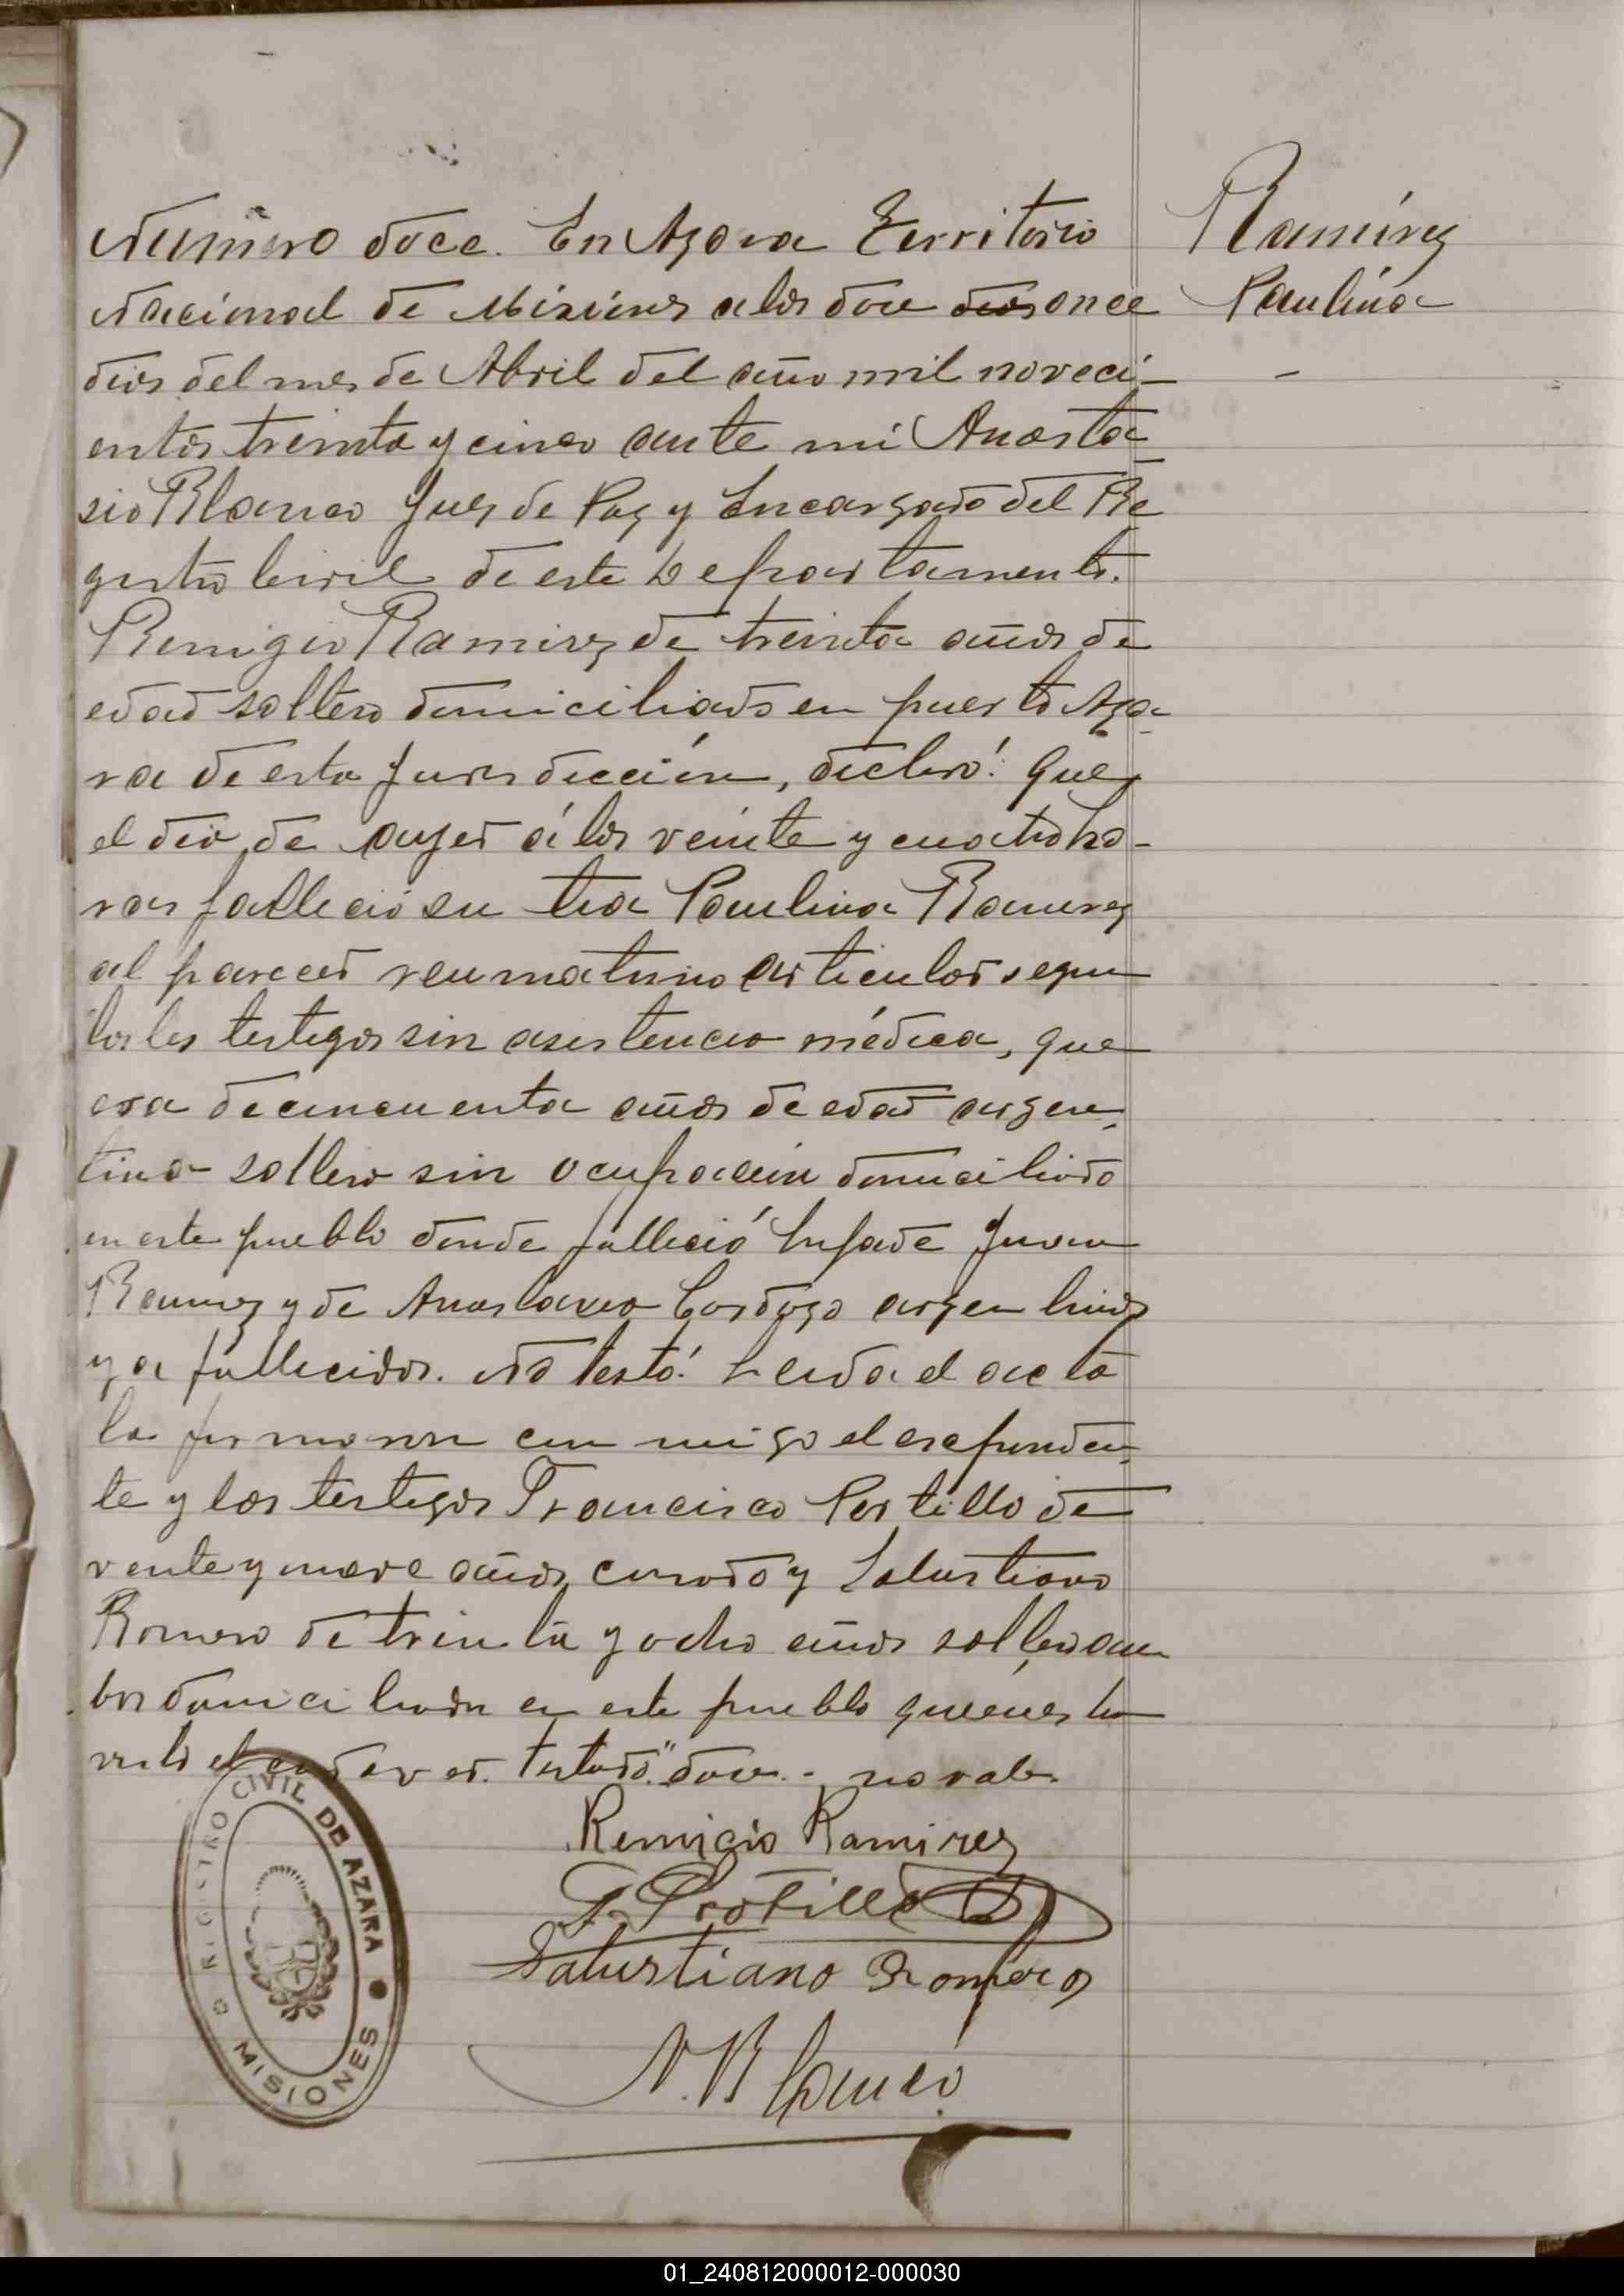 Número doce. En Azara Territorio
Nacional de Misiones a los doce dias once
dias del mes de Abril del año mil noveci-
entos treinta y cinco ante mi Anasta-
sio Blanco Juez de Paz y Encargado del Re
gistro Civil de este Departamento.
Remigio Ramirez de treinta años de
edad soltero domiciliado en puerto Aza-
ra de esta Jurisdicción, declaró: Que
el dia de ayer á las veinte y cuatro ho-
ras falleció su tia Paulina Ramirez
al parecer reumatismo articular segun
los testigos sin asistencia médica, que
era de cincuenta años de edad argen-
tina soltera sin ocupación domiciliada
en este pueblo donde falleció hija de Juan
Ramirez y de Cardozo argentinos
ya fallecidos. No testó. Leida el acta
la firmaron con migo el esponden-
te y los testigos Francisco Portillo de
veinte y nueve años, casado y Salustiano
Romero de treinta y ocho años soltero am-
bos domiciliados en este pueblo quienes han
visto el cadaver. Testado "doce" - no vale.
Remigio Ramirez
F. Portillo
Salustiano Romero
A. Blanco
Ramírez
Paulina
REGISTRO CIVIL DE AZARA
MISIONES
01_240812000012-000030